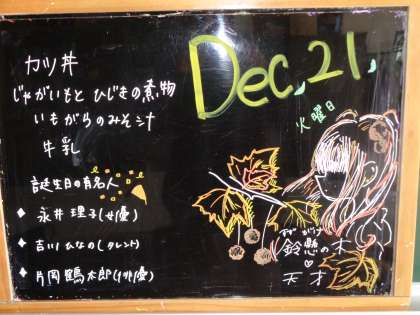 Dec. 21.
火曜日
カツ丼
じゃがいもと ひじきの煮物
いもがらのみそ汁
牛乳
誕生日の有名人
◆ 永井 理子(女優)
◆ 吉川 ひなの(タレント)
◆ 片岡 鶴太郎(俳優)
すずかけ
鈴懸の木
♡
天才